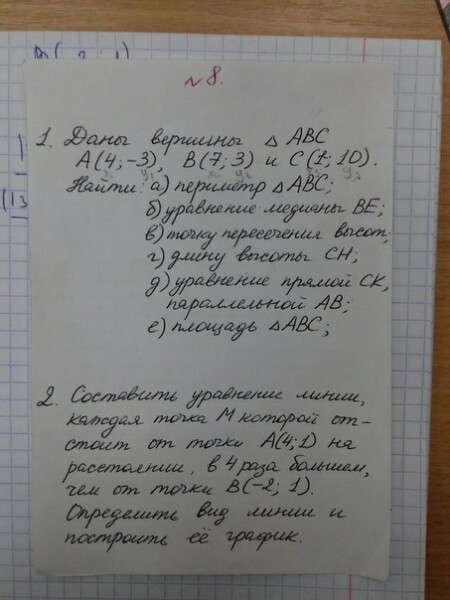 №8.
1. Даны вершины △ ABC
A(4;-3), B(7;3) и C(1;10).
Найти: а) периметр △ABC;
б) уравнение медианы BE;
в) точку пересечения высот;
г) длину высоты CH;
д) уравнение прямой CK,
параллельной AB;
е) площадь △ABC;
2. Составить уравнение линии,
каждая точка M которой от-
стоит от точки A(4;1) на
расстоянии, в 4 раза большем,
чем от точки B(-2; 1).
Определить вид линии и
построить её график.